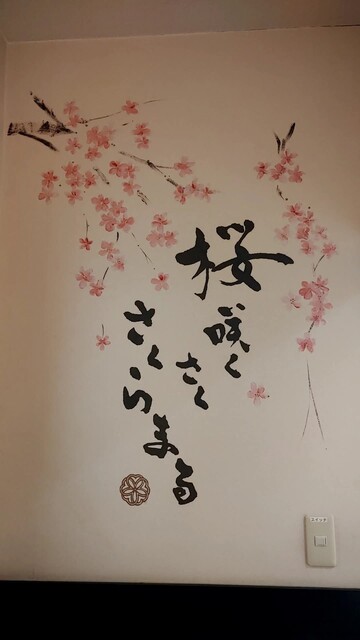 桜
咲く
さく
さくらまる